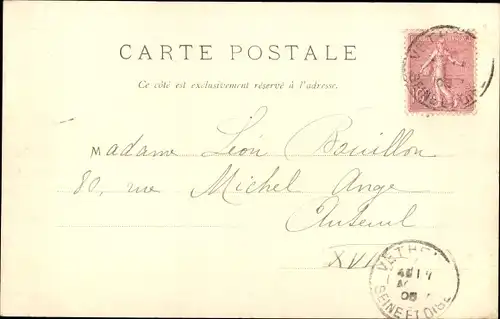 CARTE POSTALE
Ce côté est exclusivement réservé à l'adresse.
Madame Léon Bouillon
80, rue Michel Ange
Auteuil
XVI
SEINE ET OISE
05
SEINE ET OISE